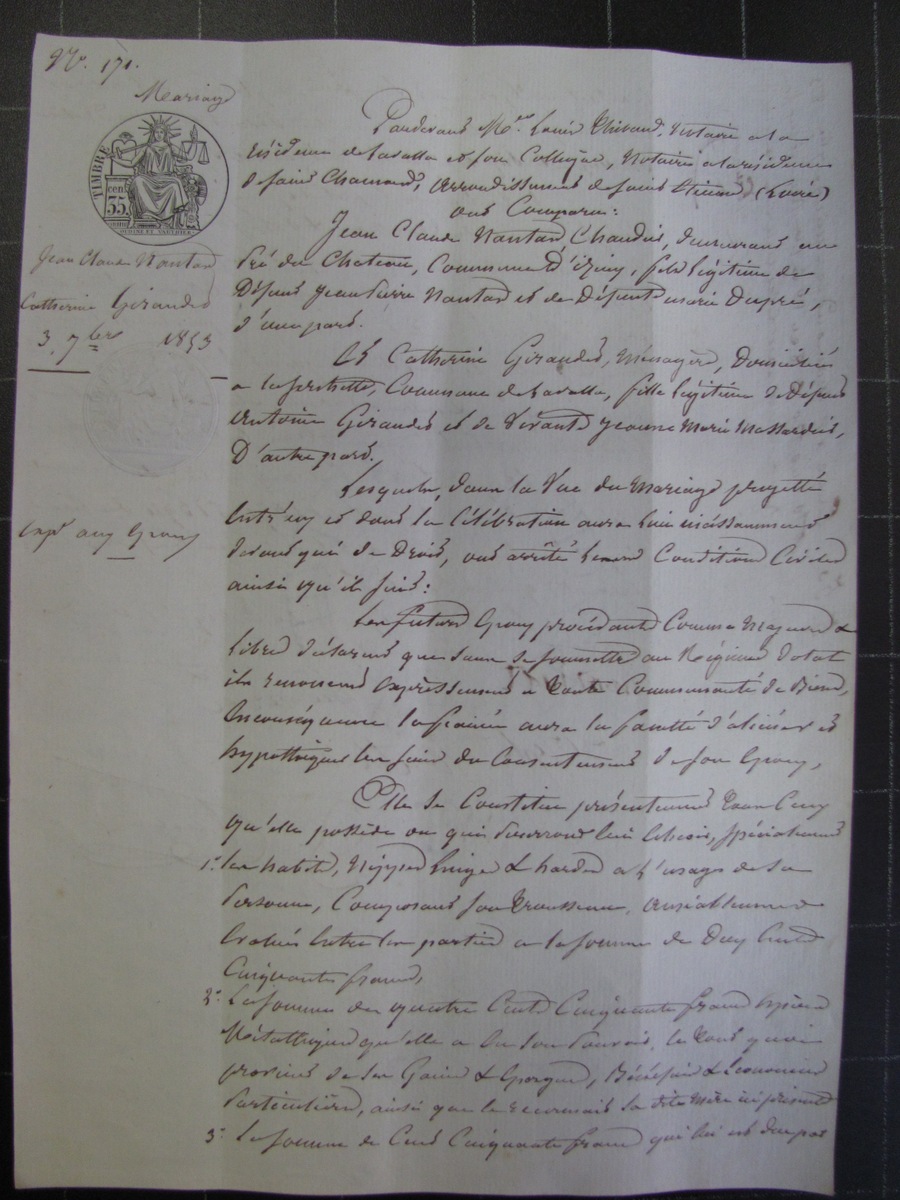 No. 171.
Mariage
TIMBRE
cen.
35
OUDINE ET VAUTHIER
Jean Claude Nantas
Catherine Giraudet
3, 7bre 1853
Pardevant Me. Louis Thibaud, Notaire a la
résidence de Lavalla et son Collègue, Notaire a la résidence
de Saint Chamond, arrondissement de Saint Etienne (Loire)
ont Comparu:
Jean Claude Nantas, demeurant au
Pré du Chateau, Commune d'izieu, fils légitime de
Défunt Jean Pierre Nantas et de Défunte marie Dupré,
d'une part.
Et Catherine Giraudet, Ménagère, Domiciliée
a, Commune de Lavalla, fille légitime de Défunt
Antoine Giraudet et de Vivante Jeanne Marie Massardier,
D'autre part.
Lesquels, dans la Vue du Mariage projetté
Entr'eux et dont la Célébration aura lieu incessamment
devant qui de Droit, ont arrêté les Conditions Civiles
ainsi qu'il suit:
Les futurs Epoux procédant Comme Majeurs &
libres déclarent que sans se soumettre au Régime Dotal
ils renoncent expressément a toute Communauté de Biens,
En conséquence la future aura la faculté d'aliéner et
hypothéquer les siens du Consentement de son Epoux,
Elle se Constitue présentement tous Ceux
qu'elle possède ou qui pourront lui échoir, spécialement
1.° les habits, Nippes linge & hardes a l'usage de sa
Personne, Composant son trousseau, amiablement
Evalués Entre les parties a la somme de Deux Cents
Cinquante francs,
2.° La somme de quatre Cents Cinquante francs Espèces
Métalliques qu'elle a en son Pouvoir, le tout
provient de ses Gains & Epargnes, Bénéfices & Economies
Particulières, ainsi que le reconnait sa dite Mère ici présente
3.° La somme de Cent Cinquante francs qui lui est due par